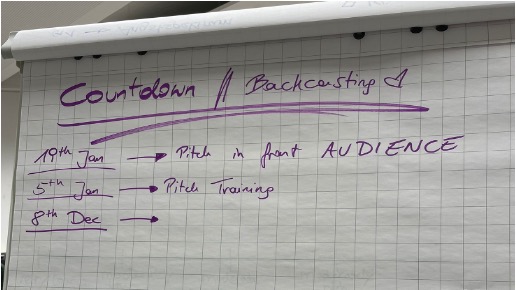 Countdown // Backcasting
19th Jan → Pitch in front AUDIENCE
5th Jan → Pitch Training
8th Dec →